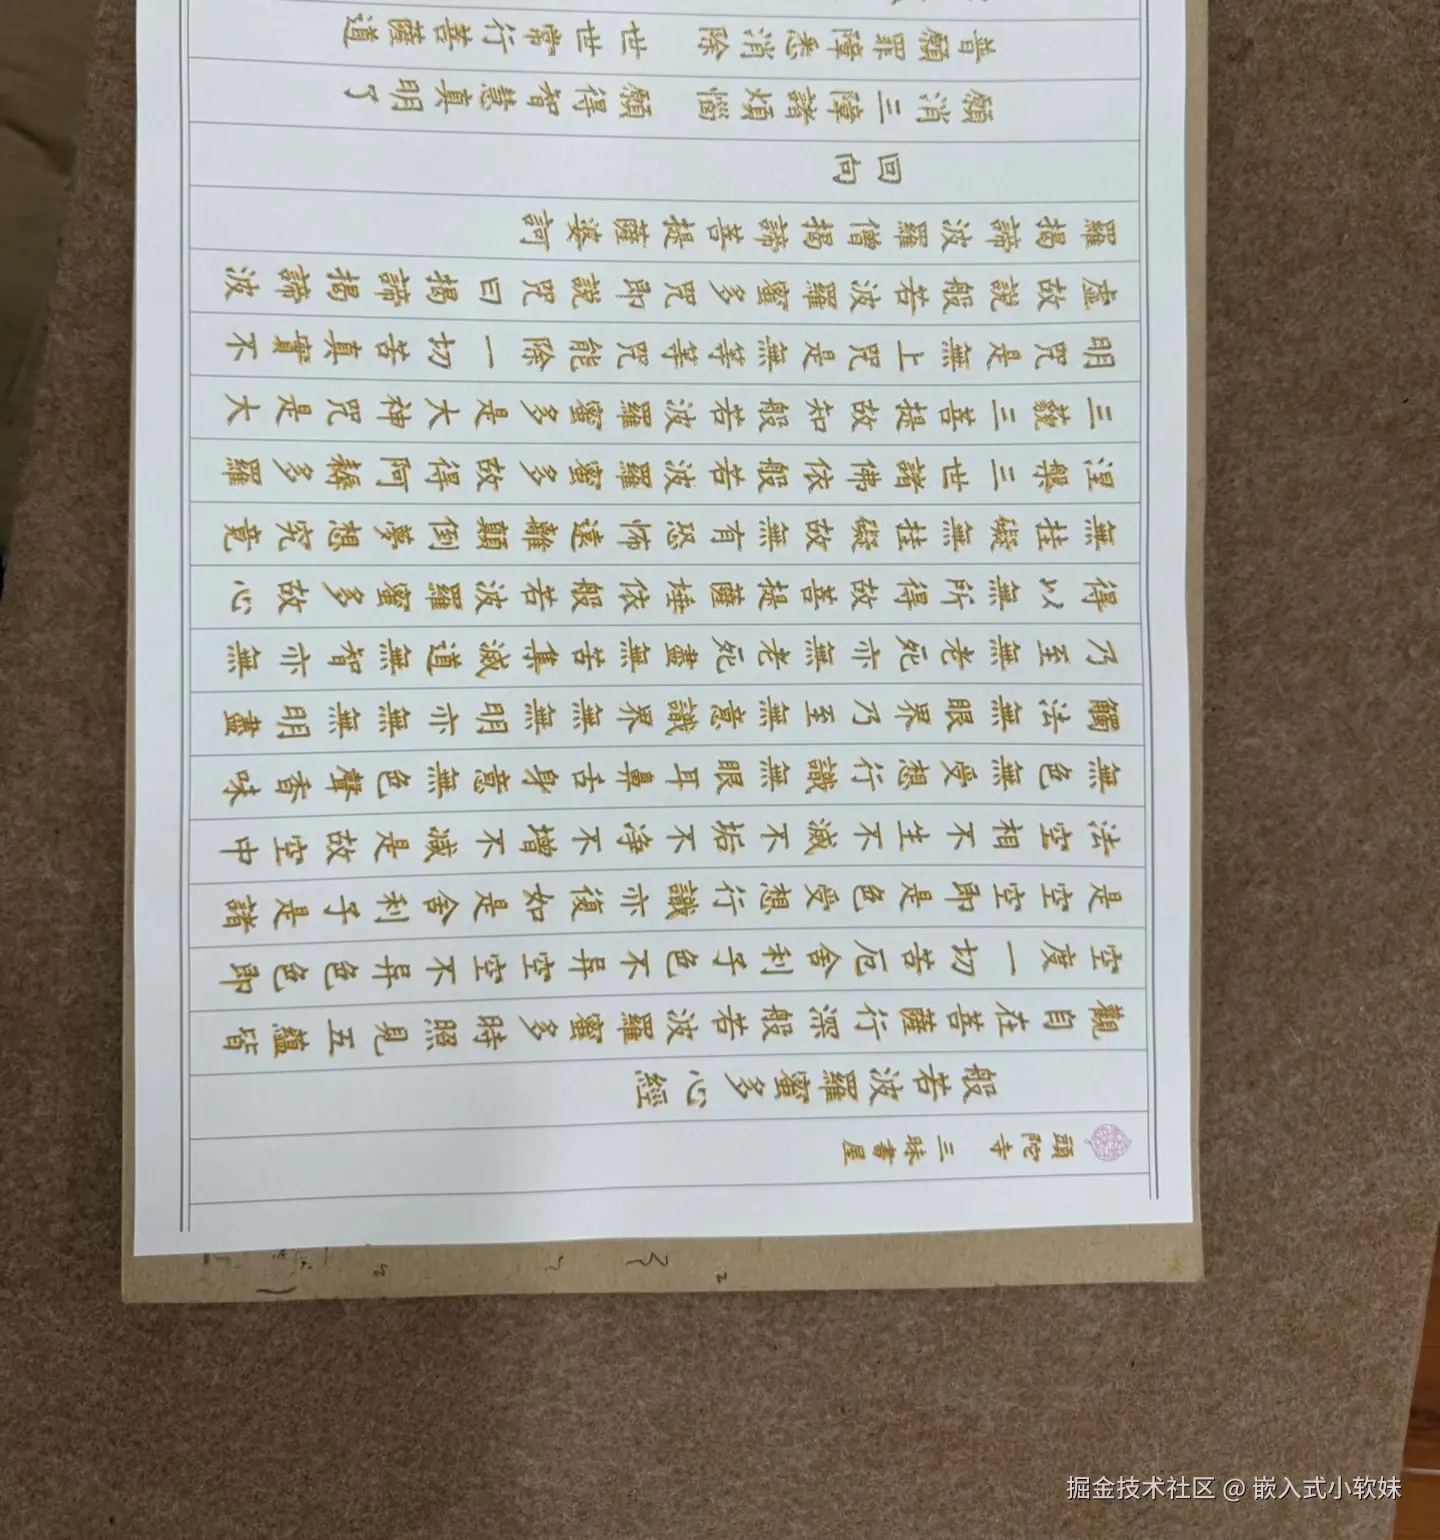 頭陀寺 三昧書屋
般若波羅蜜多心經
觀自在菩薩行深般若波羅蜜多時照見五蘊皆
空度一切苦厄舍利子色不异空空不异色色即
是空空即是色受想行識亦復如是舍利子是諸
法空相不生不滅不垢不净不增不減是故空中
無色無受想行識無眼耳鼻舌身意無色聲香味
觸法無眼界乃至無意識界無無明亦無無明盡
乃至無老死亦無老死盡無苦集滅道無智亦無
得以無所得故菩提薩埵依般若波羅蜜多故心
無挂礙無挂礙故無有恐怖遠離顛倒夢想究竟
涅槃三世諸佛依般若波羅蜜多故得阿耨多羅
三藐三菩提故知般若波羅蜜多是大神咒是大
明咒是無上咒是無等等咒能除一切苦真實不
虛故說般若波羅蜜多咒即說咒曰揭諦揭諦波
羅揭諦波羅僧揭諦菩提薩婆訶
回向
願消三障諸煩惱 願得智慧真明了
普願罪障悉消除 世世常行菩薩道
掘金技术社区 @ 嵌入式小软妹